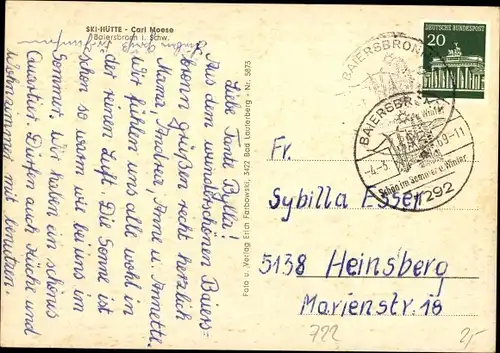 SKI-HÜTTE - Carl Moese
Baiersbronn i. Schw.
Liebe Tante Bylla!
Aus dem wunderschönen Baiers=
bronn grüßen recht herzlich
Mama, Andrea, Anne u. Annette.
Wir fühlen uns alle wohl in
der reinen Luft. Die Sonne ist
schon so warm wie bei uns im
Sommer. Wir haben ein schönes
Quartier. Dürfen auch Küche und
Wohnzimmer mit benutzen.
Foto u. Verlag Erich Farbowski, 3422 Bad Lauterberg - Nr. 5873
20
DEUTSCHE BUNDESPOST
BAIERSBRONN
BAIERSBRONN
-4.-3. 69-11
Schnee im Sommer u. Winter
7292
Fr.
Sybilla Esser
5138 Heinsberg
Marienstr. 18
722
2,-